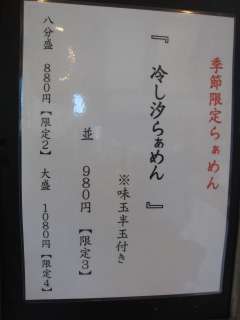 季節限定らぁめん
『 冷し汐らぁめん 』
※味玉半玉付き
並 980円【限定3】
八分盛 880円【限定2】 大盛 1080円【限定4】